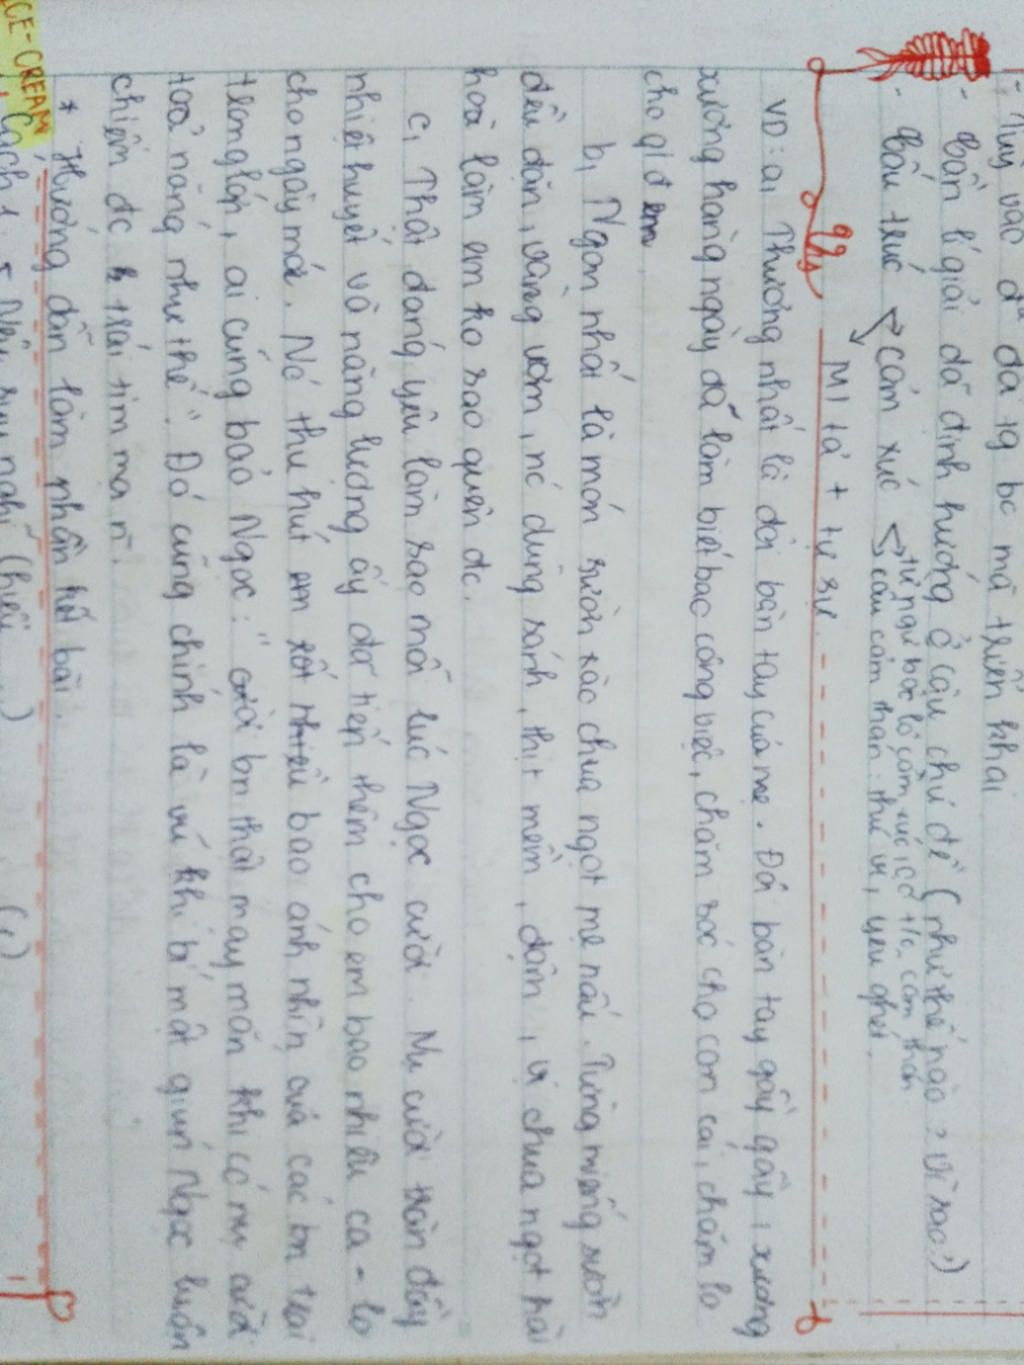 - Tuỳ vào đ đã tg bc mà triển khai
- Cần lí giải đã định hướng ở câu chủ đề (như thế nào? vì sao?)
- Cấu trúc cảm xúc từ ngữ bộc lộ cảm xúc, t/c, cảm thán
câu cảm thán: thú vị, yêu ghét.
Mtả + tự sự.
VD: a, Thương nhất là đôi bàn tay của mẹ. Đôi bàn tay gầy gầy, xương
xương hàng ngày đã làm biết bao công việc, chăm sóc cho con cái, chăm lo
cho gđ em.
b, Ngon nhất là món sườn xào chua ngọt mẹ nấu. Từng miếng sườn
đều đặn, vàng ươm, nc dùng sánh, thịt mềm, đậm, vị chua ngọt hài
hoà làm em ko sao quên đc.
c, Thật đáng yêu làm sao mỗi lúc Ngọc cười. Nụ cười tràn đầy
nhiệt huyết và năng lượng ấy đã tiếp thêm cho em bao nhiêu ca-lo
cho ngày mới. Nó thu hút bao ánh nhìn của các bn trai
trong lớp, ai cũng bảo Ngọc: " bn thật may mắn khi có nụ cười
toả nắng như thế". Đó cũng chính là vũ khí bí mật giúp Ngọc luôn
chiếm đc trái tim mn.
* Hướng dẫn làm phần kết bài.
ICE-CREAM
Cách 1: - Nêu suy nghĩ (hiểu ...)